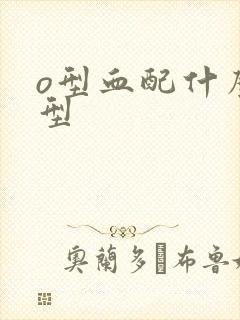 o型血配什
型
奥蘭多 布鲁